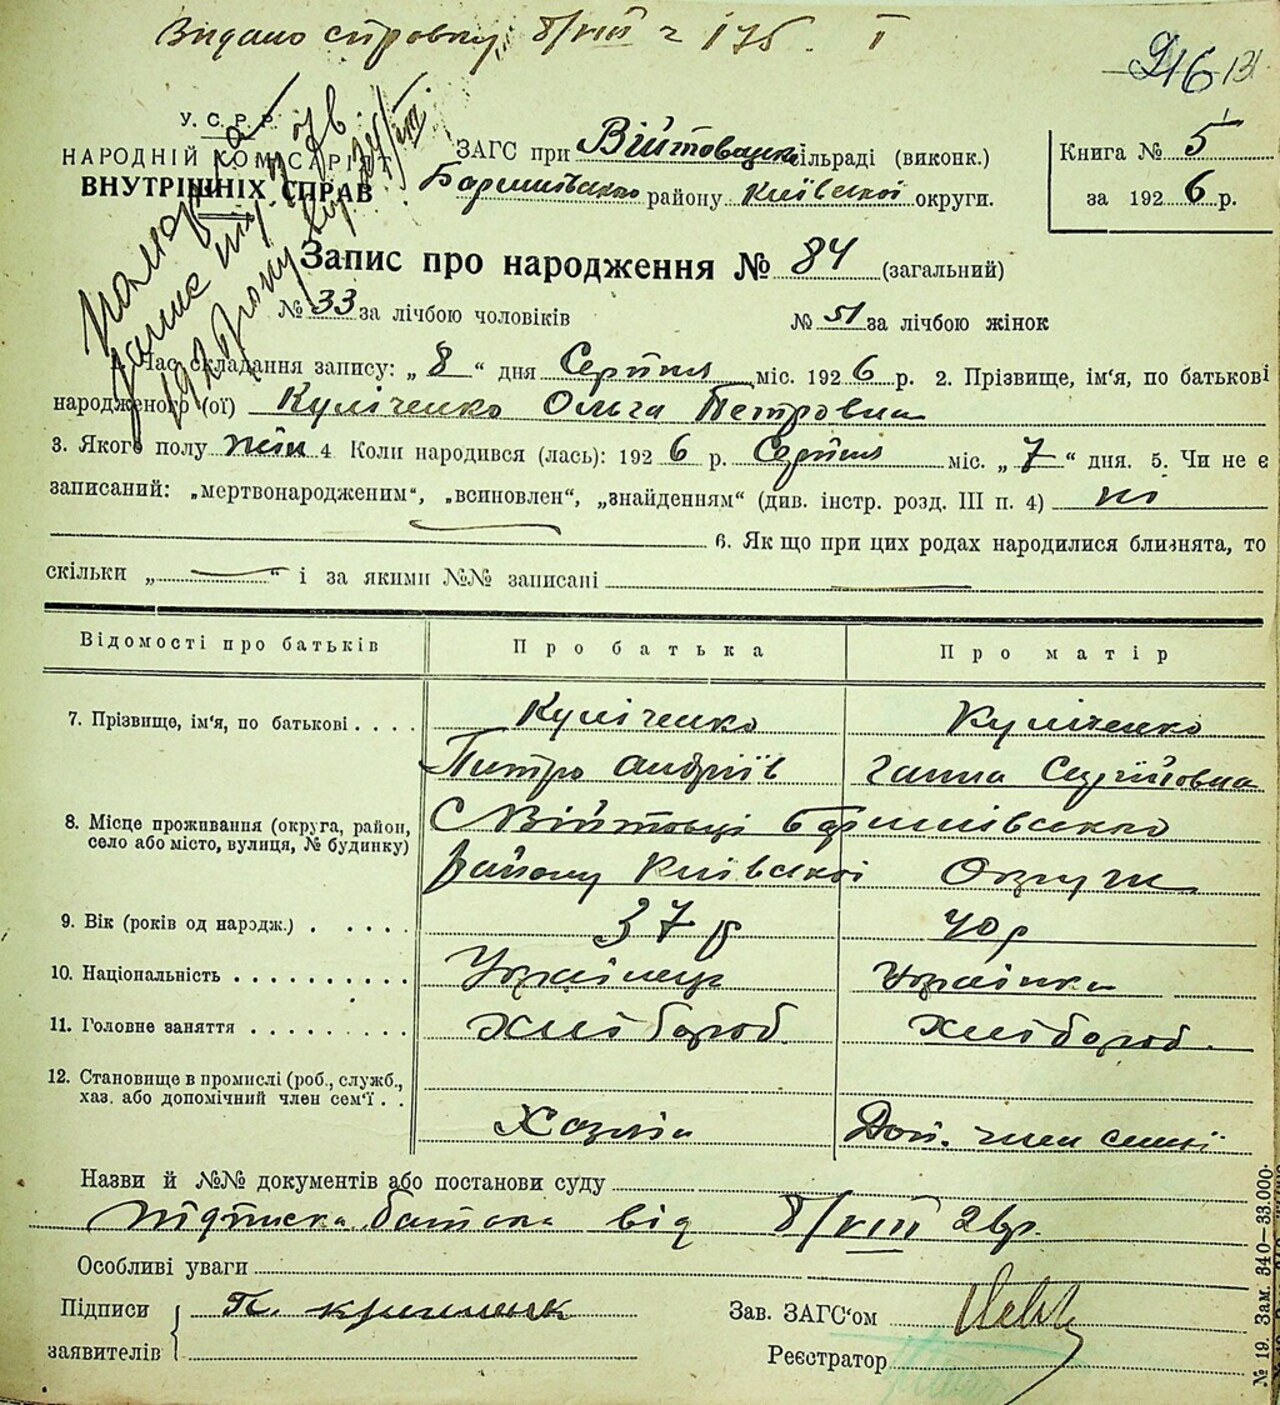 Видано справку 8/VIII № 175. I
216 131
У. С. Р. Р.
НАРОДНІЙ КОМІСАРІЯТ
ВНУТРІШНІХ СПРАВ
ЗАГС при Війтовецькій сільраді (виконк.)
Баришівського району Київської округи.
Книга № 5
за 1926 р.
Запис про народження № 84 (загальний)
№ 33 за лічбою чоловіків № 51 за лічбою жінок
1. Час складання запису: „ 8 “ дня Серпня міс. 1926 р. 2. Прізвище, ім'я, по батькові
народженого (ої) Куліченко Ольга Петровна
3. Якого полу жін 4 Коли народився (лась): 1926 р. Серпня міс. „ 7 “ дня. 5. Чи не є
записаний: „мертвонародженим“, „всиновлен“, „знайденням“ (див. інстр. розд. III п. 4) ні
6. Як що при цих родах народилися близнята, то
скільки „ “ і за якими №№ записані
Відомості про батьків Про батька Про матір
7. Прізвище, ім'я, по батькові . . . . Куліченко Куліченко
Питро Андріїв Ганна Сергіїовна
8. Місце проживання (округа, район, С Війтовці Баришівського
село або місто, вулиця, № будинку) району Київської Округи
9. Вік (років од нарэдж.) . . . . . 37 р 40 р
10. Національність . . . . . . . . . . Українець Українка
11. Головне заняття . . . . . . . . . Хлібороб Хлібороб.
12. Становище в промислі (роб., служб.,
хаз. або допомічний член сем'ї . . Хазяїн Доп. член семї
Назви й №№ документів або постанови суду
підписка батька від 8/VIII 26р.
Особливі уваги
Підписи П.
заявителів
Зав. ЗАГС'ом
Реєстратор
№ 19. Зам. 340—33.000.